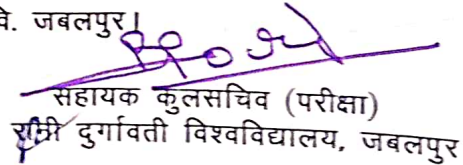 वे. जबलपुर।
सहायक कुलसचिव (परीक्षा)
रानी दुर्गावती विश्वविद्यालय, जबलपुर